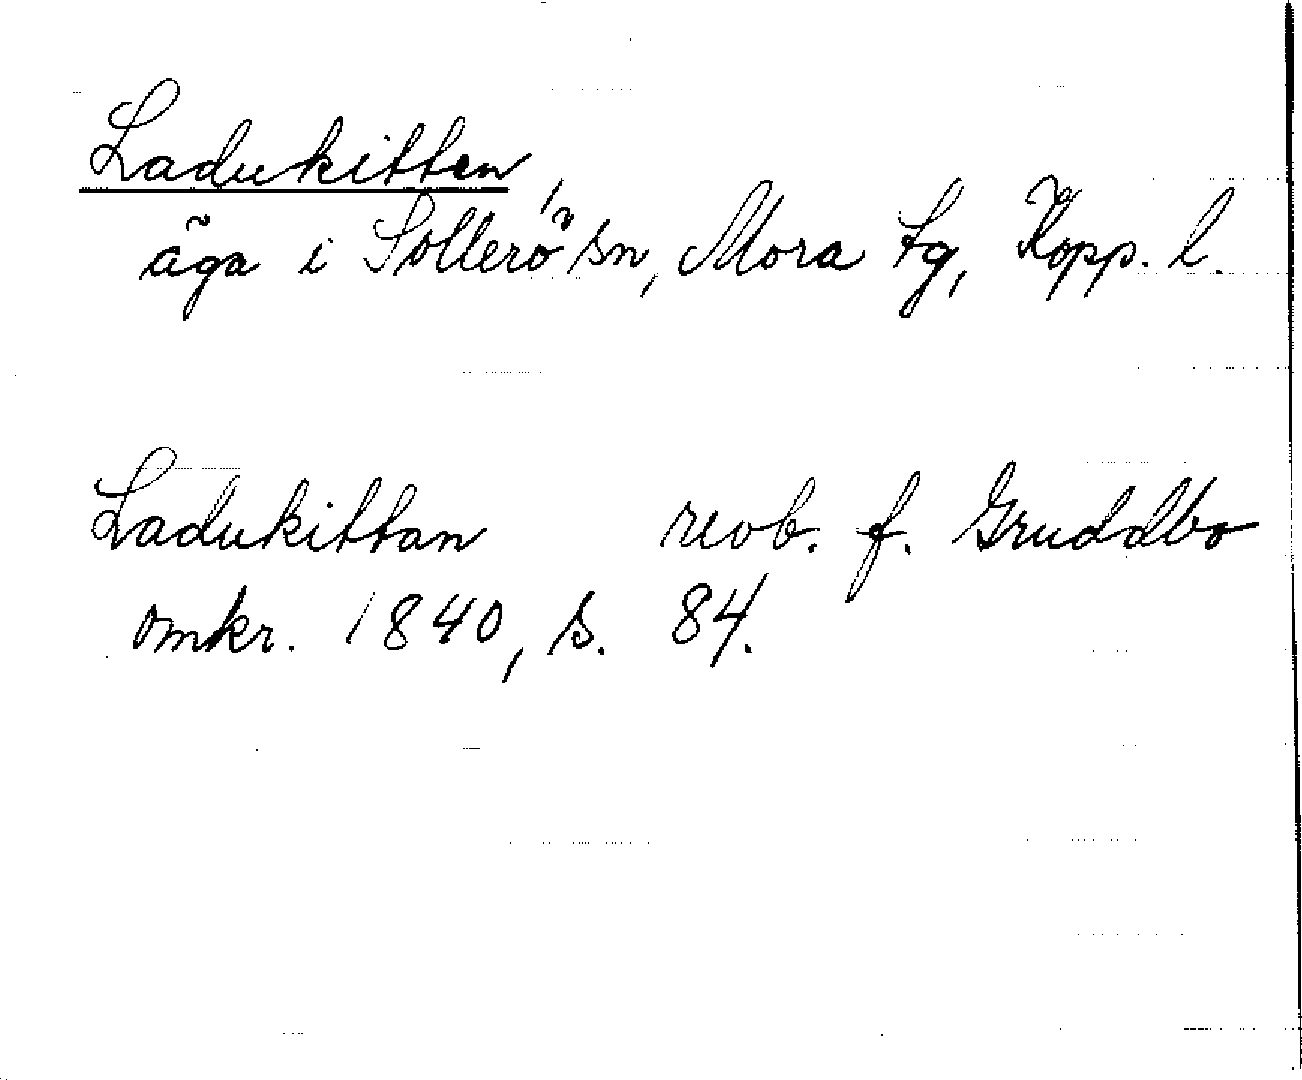 Ladukitten
äga i Sollerö sn, Mora tg, Kopp. l.
Ladukittan revb. f. Gruddbo
omkr. 1840, s. 84.